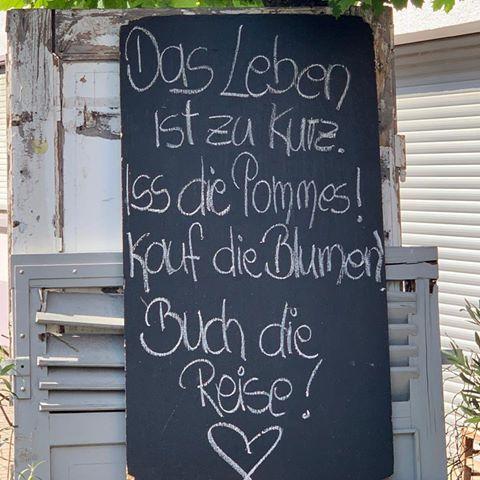 Das Leben
ist zu kurz.
Iss die Pommes!
Kauf die Blumen!
Buch die
Reise!